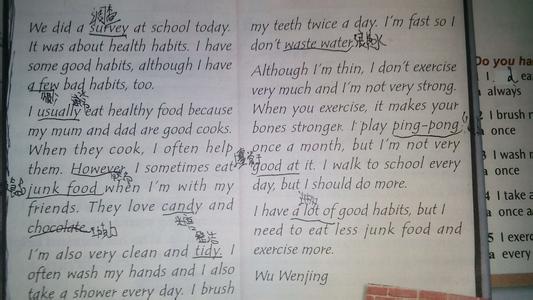 调查
We did a survey at school today.
It was about health habits. I have
some good habits, although I have
a few bad habits, too.
I usually eat healthy food because
my mum and dad are good cooks.
When they cook, I often help
them. However, I sometimes eat
junk food when I'm with my
friends. They love candy and
chocolate.
I'm also very clean and tidy. I
often wash my hands and I also
take a shower every day. I brush
my teeth twice a day. I'm fast so I
don't waste water.
Although I'm thin, I don't exercise
very much and I'm not very strong.
When you exercise, it makes your
bones stronger. I play ping-pong
once a month, but I'm not very
good at it. I walk to school every
day, but I should do more.
I have a lot of good habits, but I
need to eat less junk food and
exercise more.
Wu Wenjing
Do you ha
1 I
a always
I brush m
a once
I wash m
a once
4 I take a
a once a
5 I exerc
a every